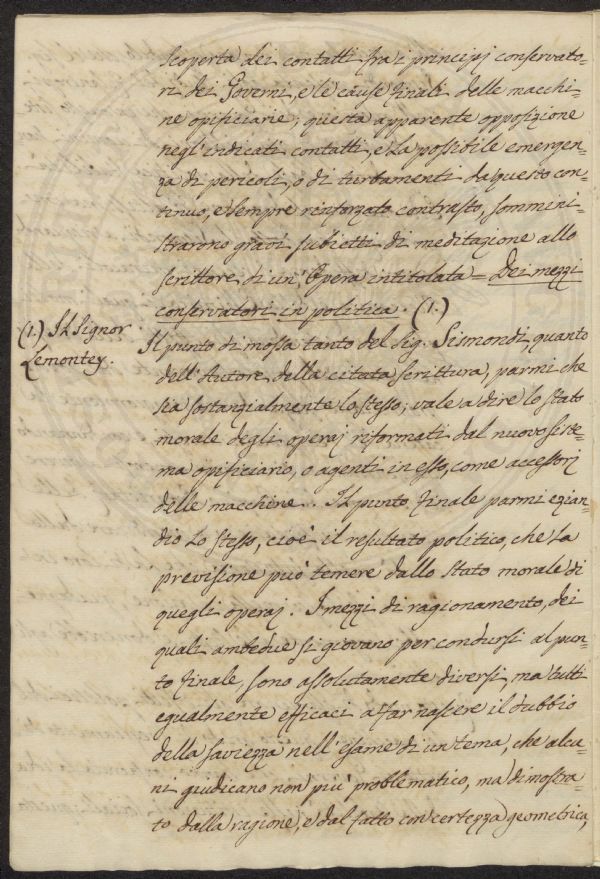 scoperta dei contatti fra i principj conservato-
ri dei Governi, e le cause finali delle macchi-
ne opificiarie; questa apparente opposizione
negl'indicati contatti, e la possibile emergen-
za di pericoli, o di turbamenti da questo con-
tinuo, e sempre rinforzato contrasto, sommini-
strarono gravi subietti di meditazione allo
scrittore di un'Opera intitolata = Dei mezzi
conservatori in politica. (1.)
(1.) Il Signor
Lemontey.
Il punto di mossa tanto del Sig. Sismondi, quanto
dell'Autore della citata scrittura, parmi che
sia sostanzialmente lo stesso; vale a dire lo stato
morale degli operaj riformati dal nuovo siste-
ma opificiario, o agenti in esso, come accessorj
delle macchine. Il punto finale parmi ezian-
dio lo stesso, cioè il resultato politico, che la
previsione può temere dallo stato morale di
quegli operaj. I mezzi di ragionamento, dei
quali ambedue si giovano per condursi al pun-
to finale, sono assolutamente diversi, ma tutti
egualmente efficaci a far nascere il dubbio
della saviezza nell'esame di un tema, che alcu-
ni giudicano non più problematico, ma dimostra-
to dalla ragione, e dal fatto con certezza geometrica,